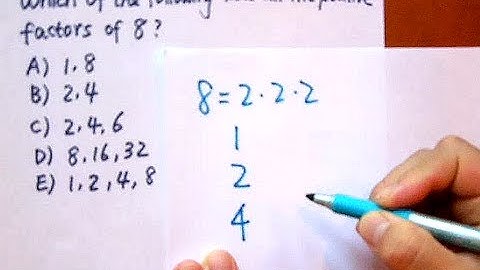 Which of the following
factors of 8?
A) 1, 8
B) 2, 4
C) 2, 4, 6
D) 8, 16, 32
E) 1, 2, 4, 8
8 = 2 · 2 · 2
1
2
4